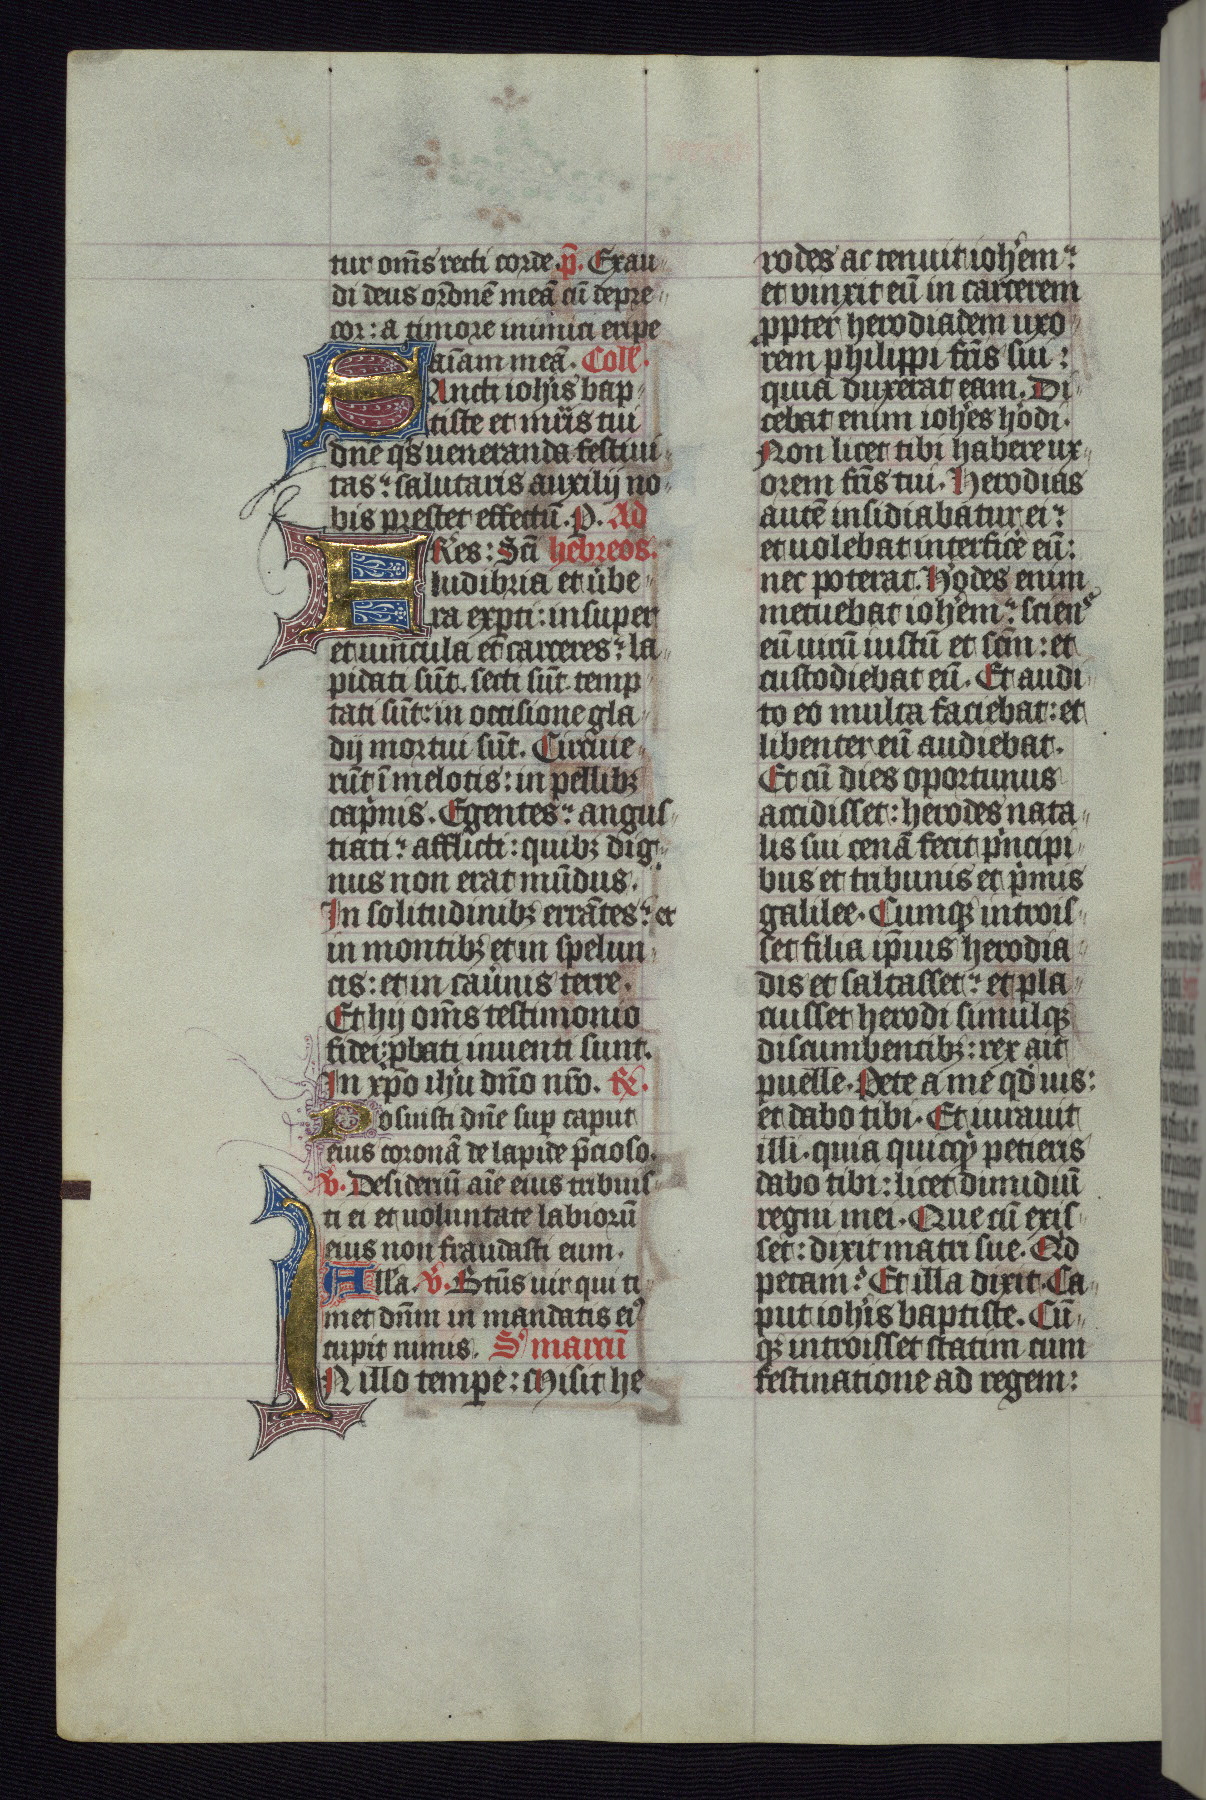 tur om̄s recti corde. p̄. Exau
di deus or̄onē meā cū depre
cor: a timore inimici eripe
aīam meā. Coll̄.
SAncti ioh̄is bap
tiste et mr̄is tui
dn̄e qs̄ ueneranda festiui
tas: salutaris auxilij no
bis prestet effectū. P. Ad
FRes: Scī hebreos.
ludibria et ūbe
ra expti: insuper
et uincula et carceres: la
pidati sūt. secti sūt. temp
tati sūt: in occisione gla
dij mortui sūt. Circuie
rūt ī melotis: in pellibꝫ
capͥnis. Egentes: angus
tiati: afflicti: quibꝫ dig
nus non erat mūdus.
In solitudinibꝫ errātes: et
in montibꝫ et in spelun
cis: et in cauͥnis terre.
Et hij om̄s testimonio
fidei ꝓbati inuenti sunt.
In xp̄o ih̄u dn̄o nr̄o. R̄.
Posuisti dn̄e sup caput
eius coronā de lapide p̄cioso.
v̄. Desideriū aīe eius tribuis
ti ei et uoluntate labiorū
eius non fraudasti eum.
All̄a. v̄. Btūs uir qui ti
met dn̄m in mandatis eiꝰ
cupit nimis. S' marcū
IN illo tempe: Misit he
rodes ac tenuit ioh̄em:
et vinxit eū in carcerem
ꝓpter herodiadem uxo
rem philippi fr̄is sui:
quia duxerat eam. Di
cebat enim ioh̄es h̄odi.
Non licet tibi habere ux
orem fr̄is tui. Herodias
autē insidiabatur ei:
et uolebat interfice eū:
nec poterat. H̄odes enim
metuebat ioh̄em: sciens
eū uirū iustū et scm̄: et
custodiebat eū. Et audi
to eo multa faciebat: et
libenter eū audiebat.
Et cū dies oportunus
accidisset: herodes nata
lis sui cenā fecit pͥncipi
bus et tribunis et pͥmis
galilee. Cumqꝫ introis
set filia ip̄ius herodia
dis et saltasset: et pla
cuisset herodi simulqꝫ
discumbentibꝫ: rex ait
puelle. Pete a me qd̄ uis:
et dabo tibi. Et iurauit
illi. quia quicqͥd petieris
dabo tibi: licet dimidiū
regni mei. Que cū exis
set: dixit matri sue. Qͥd
petam? Et illa dixit. Ca
put ioh̄is baptiste. Cū
qꝫ introisset statim cum
festinatione ad regem: